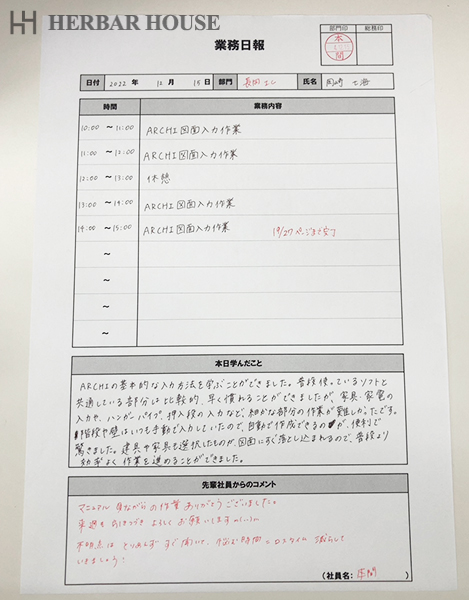 HERBAR HOUSE
業務日報
部門印 総務印
本間
日付 2022 年 12 月 15日 部門 長岡 氏名 岡崎 七海
時間 業務内容
10:00 ～ 11:00 ARCHI図面入力作業
11:00 ～ 12:00 ARCHI図面入力作業
12:00 ～ 13:00 休憩
13:00 ～ 14:00 ARCHI図面入力作業
14:00 ～ 15:00 ARCHI図面入力作業 19/27ページまで完了
～
～
～
～
本日学んだこと
ARCHIの基本的な入力方法を学ぶことができました。普段使っているソフトと
共通している部分は比較的、早く慣れることができましたが、家具・家電の
入力や、ハンガーパイプ、押入段の入力など、細かな部分の作業が難しかったです。
階段や壁はいつも手動で入力していたので、自動で作成できるのが、便利で
驚きました。建具や家具も選択したものが、図面にすぐ落とし込まれるので、普段より
効率よく作業を進めることができました。
先輩社員からのコメント
マニュアル 見ながらの作業 ありがとうございました。
来週も ひきつづき よろしく お願いします
不明点は とりあえず すぐ聞いて、悩む時間＝ロスタイム 減らして
いきましょう！
（社員名： 本間 ）